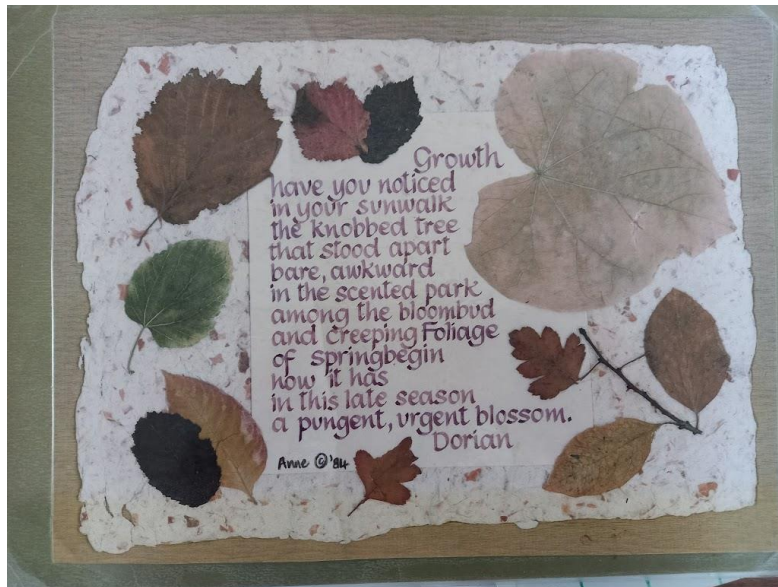 Growth
have you noticed
in your sunwalk
the knobbed tree
that stood apart
bare, awkward
in the scented park
among the bloombud
and creeping Foliage
of springbegin
now it has
in this late season
a pungent, urgent blossom.
Dorian
Anne © '84